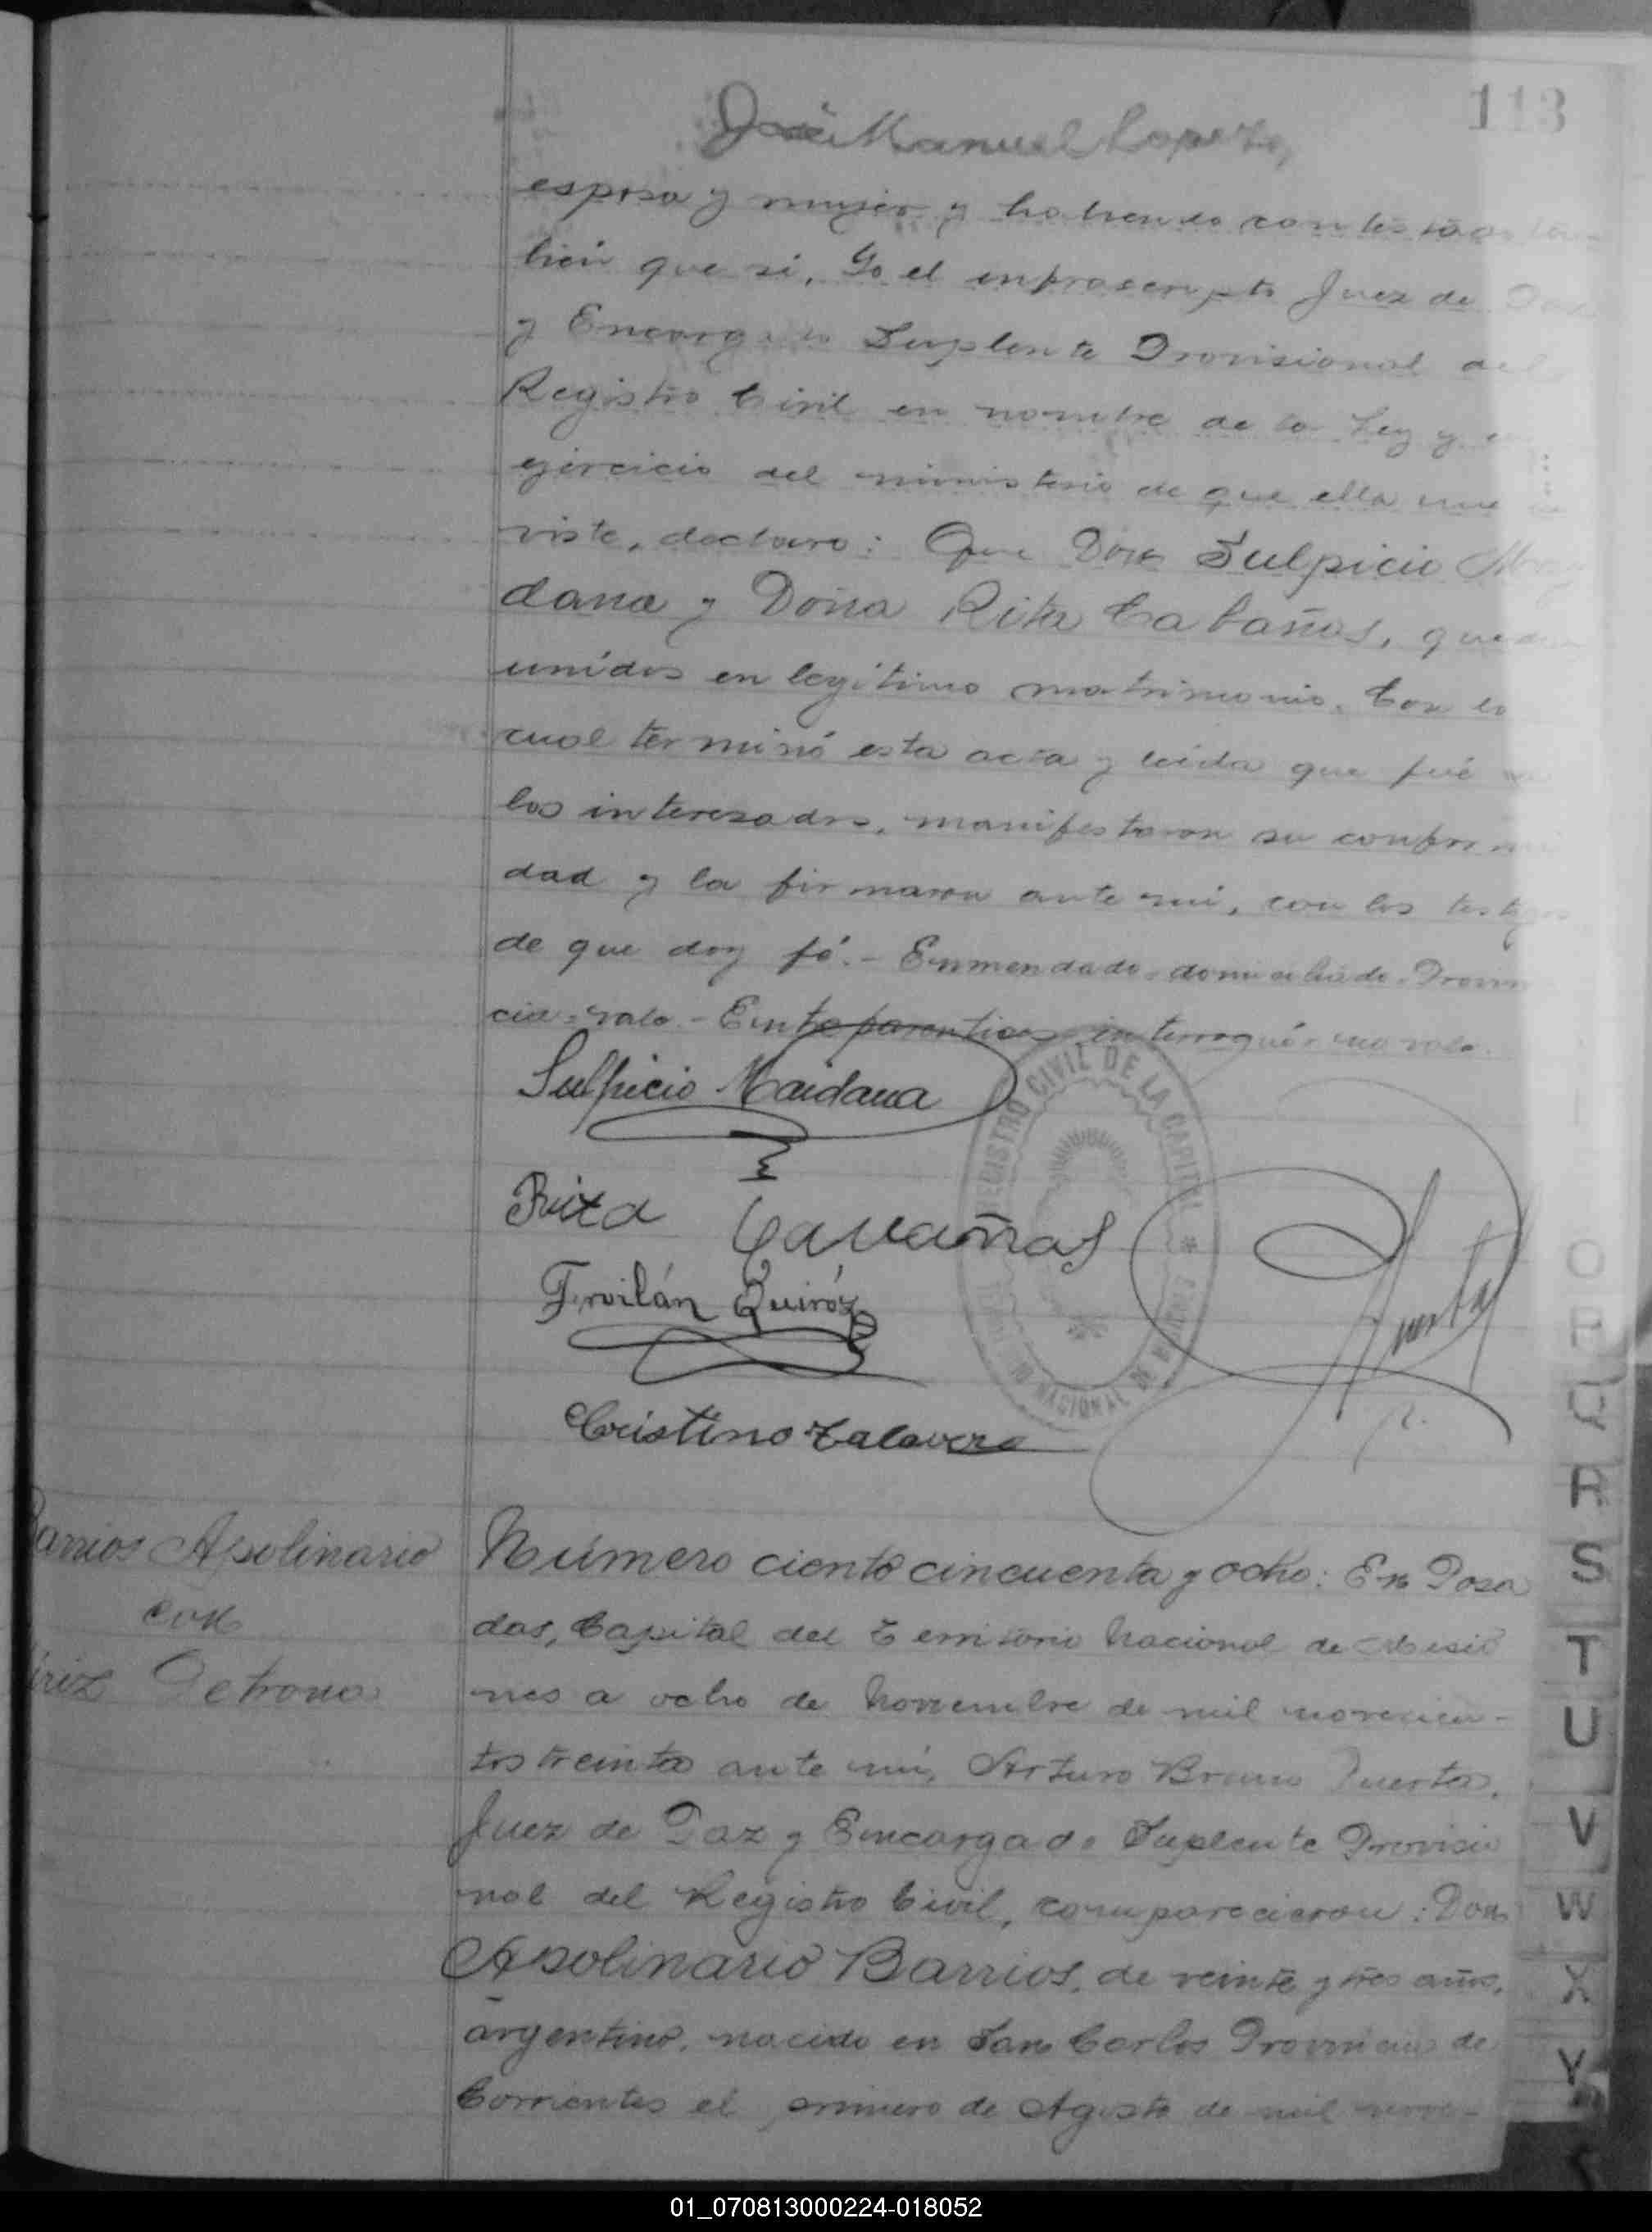 113
José Manuel Lopez,
esposa y mujer y habiendo contestado tam-
bién que si, Yo el infrascripto Juez de Paz
y Encargado Suplente Provisional del
Registro Civil en nombre de la Ley y en
ejercicio del ministerio de que ella me in
viste, declaro: Que Don Sulpicio May
dana y Doña Rita Cabañas, quedan
unidos en legítimo matrimonio. Con lo
cual terminó esta acta y leída que fué a
los interesados, manifestaron su conformi
dad y la firmaron ante mí, con los testigos
de que doy fé.- Enmendado-domiciliado-Provin
cia-vale.-Entre parentices-interrogué-no vale.
Sulpicio Maidana
Rita Cavañas
Froilán Quiróz
Cristino Talavera
Puerta
REGISTRO CIVIL DE LA CAPITAL * NACIONAL DE MISIONES
Barrios Apolinario
con
Petrona
Número ciento cincuenta y ocho: En Posa
das, Capital del Territorio Nacional de Misio
nes a ocho de Noviembre de mil novecien-
tos treinta ante mí, Arturo Bruno Puertas,
Juez de Paz y Encargado Suplente Provisio
nal del Registro Civil, comparecieron: Don
Apolinario Barrios, de veinte y tres años,
argentino, nacido en San Carlos Provincia de
Corrientes el primero de Agosto de mil nove-
O
P
Q
R
S
T
U
V
W
X
Y
01_070813000224-018052